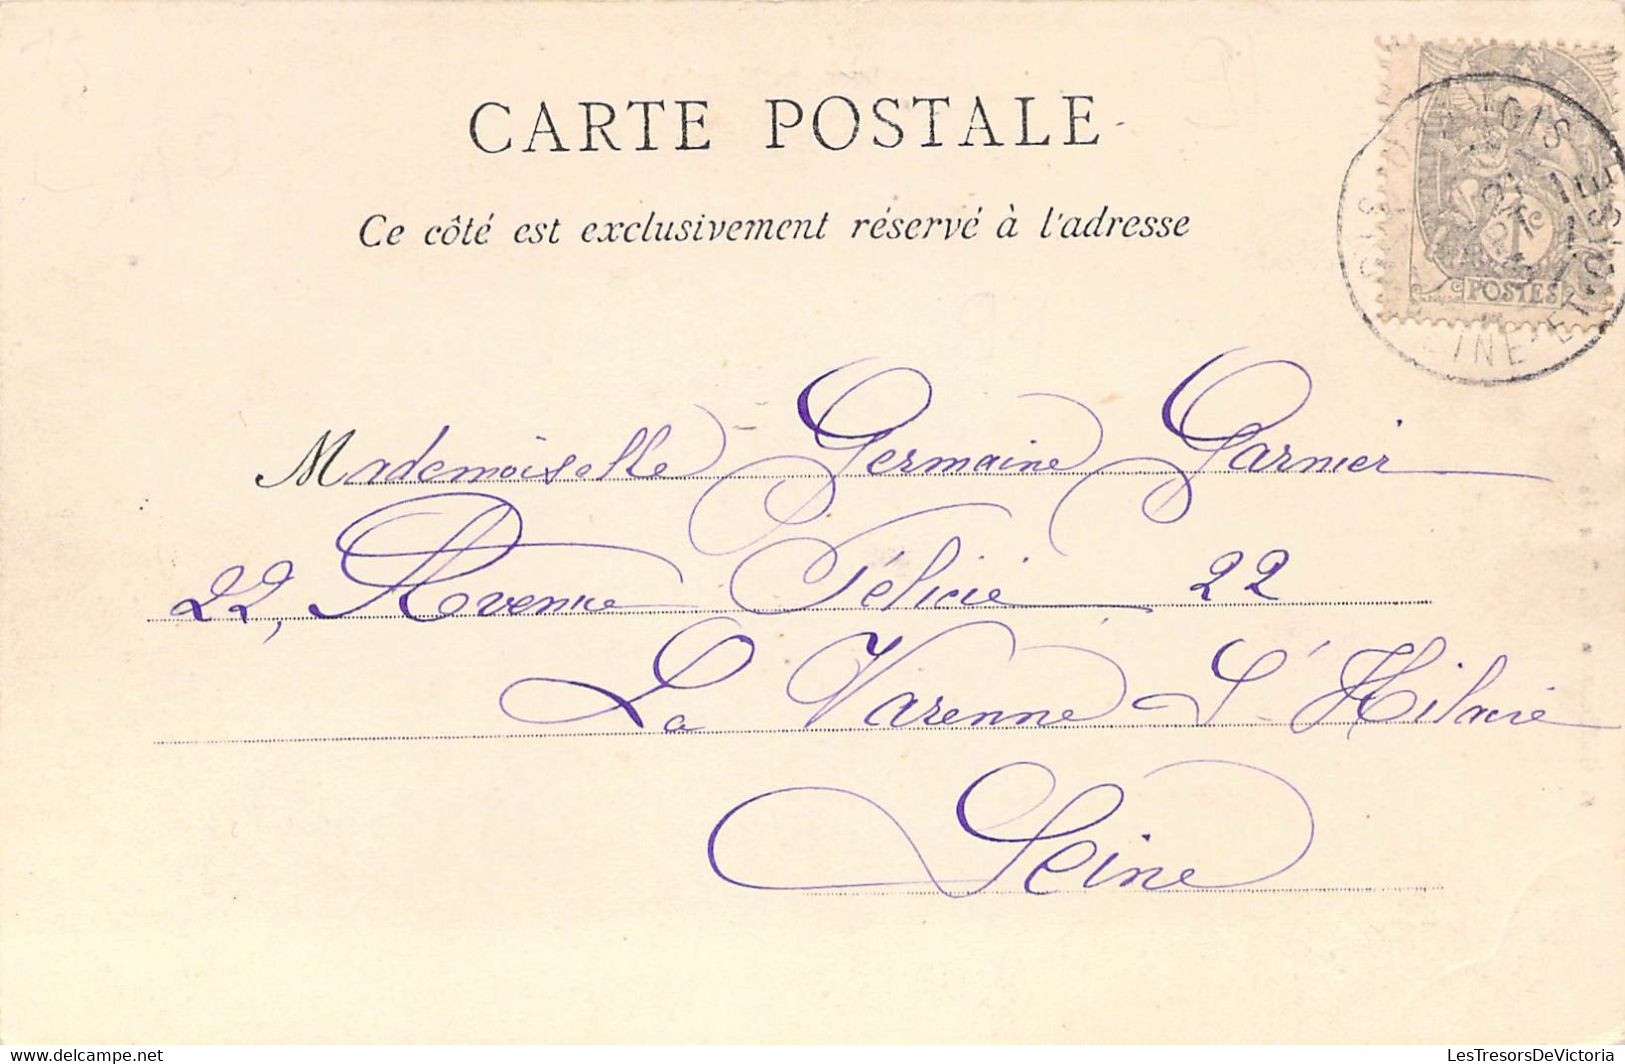 CARTE POSTALE
Ce côté est exclusivement réservé à l'adresse
POSTES
SEINE-ET-OISE
Mademoiselle Germaine Garnier
22, Avenue Félicie 22
La Varenne St Hilaire
Seine
LesTresorsDeVictoria
© delcampe.net